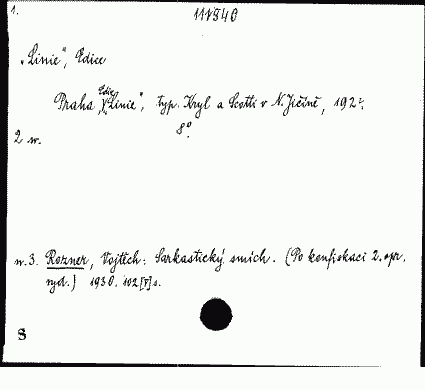 1.
111940
„Linie", Edice
Praha, Edice „Linie", typ. Kryl a Scotti v N. Jičíně, 192?.
8°.
2 sv.
sv. 3. Rozner, Vojtěch: Sarkastický smích. (Po konfiskaci 2. opr.
vyd.) 1930. 102 [V] s.
S